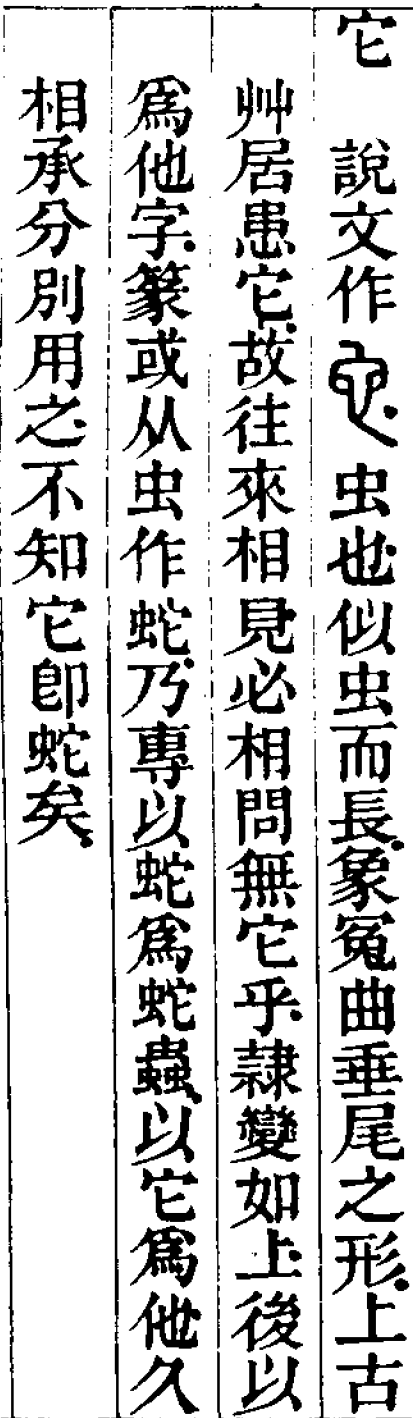 它　說文作　虫也似虫而長。象冤曲垂尾之形。上古
艸居患它。故往來相見必相問無它乎。隷變如上。後以
爲他字。篆或从虫作蛇。乃專以蛇爲蛇蟲。以它爲他。久
相承分別用之。不知它卽蛇矣。